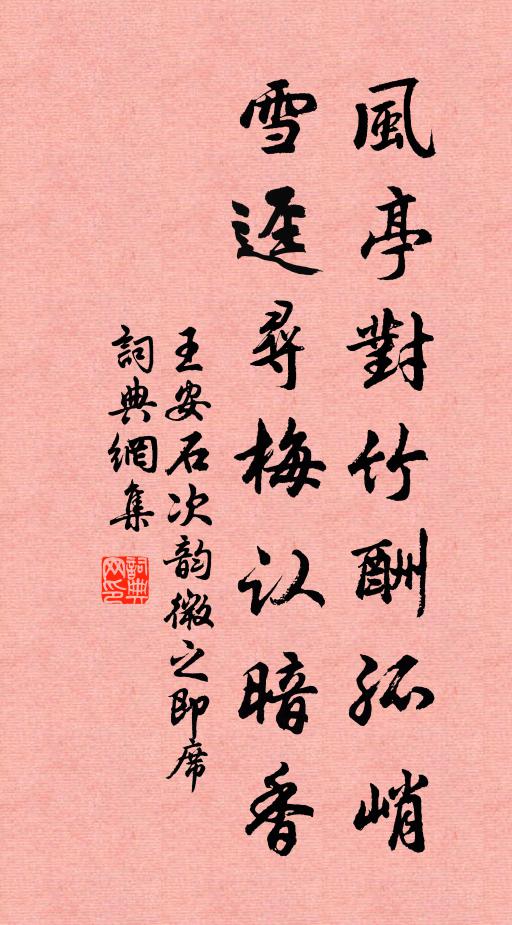 風亭對竹酬孤峭
雪逕尋梅认暗香
王安石次韵徽之即席
詞典網集
詞典网印